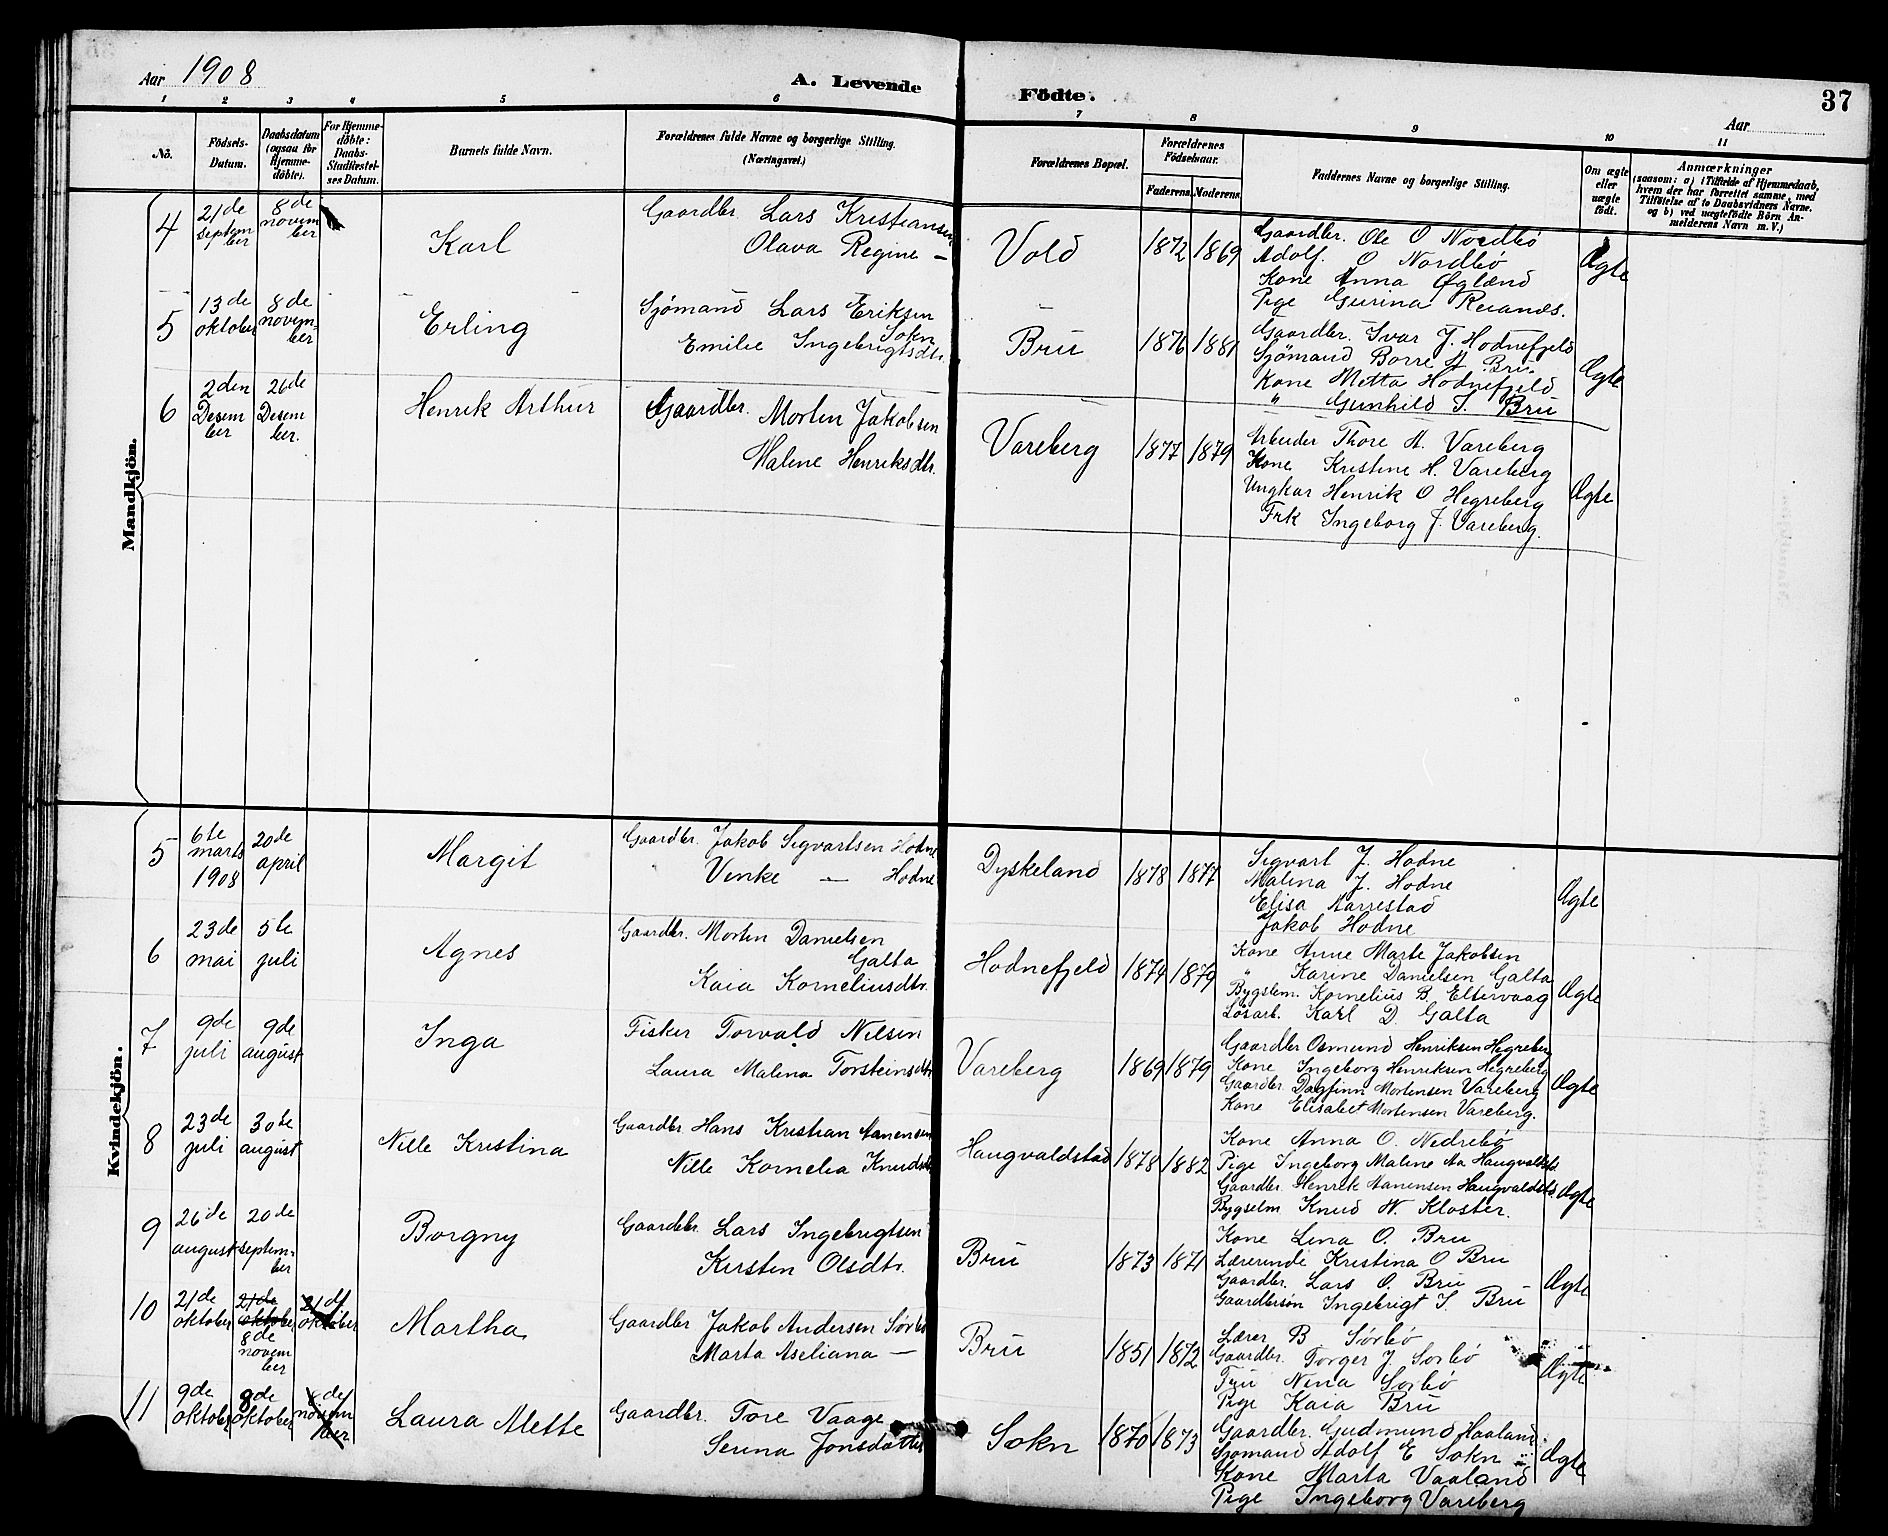 Aar 1908
A. Levende Födte.
Aar
37
1 2 3 4 5 6 7 8 9 10 11
No.
Födsels-Datum.
Daabsdatum (ogsaa for Hjemme-döbte).
For Hjemme-döbte: Daabs-Stadfæstel-ses Datum.
Barnets fulde Navn.
Forældrenes fulde Navne og borgerlige Stilling.
(Næringsvei.)
Forældrenes Bopæl.
Forældrenes Födselsaar.
Faderens. Moderens.
Faddernes Navne og borgerlige Stilling.
Om ægte eller uægte födt.
Anmærkninger
(saasom: a) i Tilfælde af Hjemmedaab, hvem der har forrettet samme, med Tilföielse af to Daabsvidners Navne. og b) ved uægtefödte Börn An-melderens Navn m. V.)
Mandkjön.
4 21de september 8de november Karl
Gaardbr. Lars Kristiansen
Olava Regine —
Vold 1872 1869
Gaardbr. Ole O Nordbø
Adolf. O Nordbø
Kone Anna Øglænd
Pige Gurina Reianes.
Ægte
5 13de oktober 8de november Erling
Sjømand Lars Eriksen
Sokn
Emilie Ingebrigtsdtr.
Bru 1876 1881
Gaardbr. Ivar J. Hodnefjeld
Sjømand Borre A Bru.
Kone Metta Hodnefjeld
" Gunhild I. Bru
Ægte
6 2den Desember 26de Desember. Henrik Arthur
Gaardbr. Morten Jakobsen
Malene Henriksdtr.
Vareberg 1877 1879
Arbeider Thore A. Vareberg
Kone Kristine H. Vareberg
Ungkar Henrik O Hegreberg
Frk Ingeborg J. Vareberg.
Ægte
Kvindekjön.
5 6te marts 1908 20de april Margit
Gaardbr. Jakob Sigvartsen Hodne
Venke — Hodne
Dyskeland 1878 1877
Sigvart J. Hodne
Malena J. Hodne
Elisa Aarrestad
Jakob Hodne
Ægte
6 23de mai 5te juli Agnes
Gaardbr. Morten Danielsen
Galta
Kaia Korneliusdtr.
Hodnefjeld 1874 1879
Kone Anne Marte Jakobsen
" Karine Danielsen Galta
Bygslem. Kornelius B. Eltervaag
Løsarb. Karl D. Galta
Ægte
7 9de juli 9de august Inga
Fisker Torvald Nilsen
Laura Malena Torsteinsdtr
Vareberg 1869 1879
Gaardbr Osmund Henriksen Hegreberg
Kone Ingeborg Henriksen Hegreberg
Gaardbr. Dagfinn Mortensen Vareberg
Kone Elisabet Mortensen Vareberg.
Ægte
8 23de juli 30te august Nille Kristina
Gaardbr Hans Kristian Aanensen
Nille Kornelia Knudsdtr
Haugvaldstad 1878 1882
Kone Anna O. Nedrebø
Pige Ingeborg Malene Aa Haugvaldstd.
Gaardbr. Henrik Aanensen Haugvaldstd
Bygselm Knud W. Kloster.
Ægte
9 26de august 20de september Borgny
Gaardbr. Lars Ingebrigtsen
Kirsten Olsdtr.
Bru 1873 1871
Kone Lena O. Bru
Lærerinde Kristina O Bru
Gaardbr. Lars O. Bru
Gaardbrsøn Ingebrigt I. Bru
Ægte
10 21de oktober 21de oktober 8de november 21de oktober Martha
Gaardbr Jakob Andersen Sørbø
Marta Aseliana —
Bru 1851 1872
Lærer B Sørbø
Gaardbr. Torger J Sørbø
Fru Nina Sørbø
Pige Kaia Bru
Ægte
11 9de oktober 8de oktober 8de november Laura Alette
Gaardbr. Tore Vaage
Serina Jonsdatter
Sokn 1870 1873
Gaardbr. Gudmund Haaland.
Sjømand Adolf E Sokn
Kone Marta Vaaland
Pige Ingeborg Vareberg
Ægte